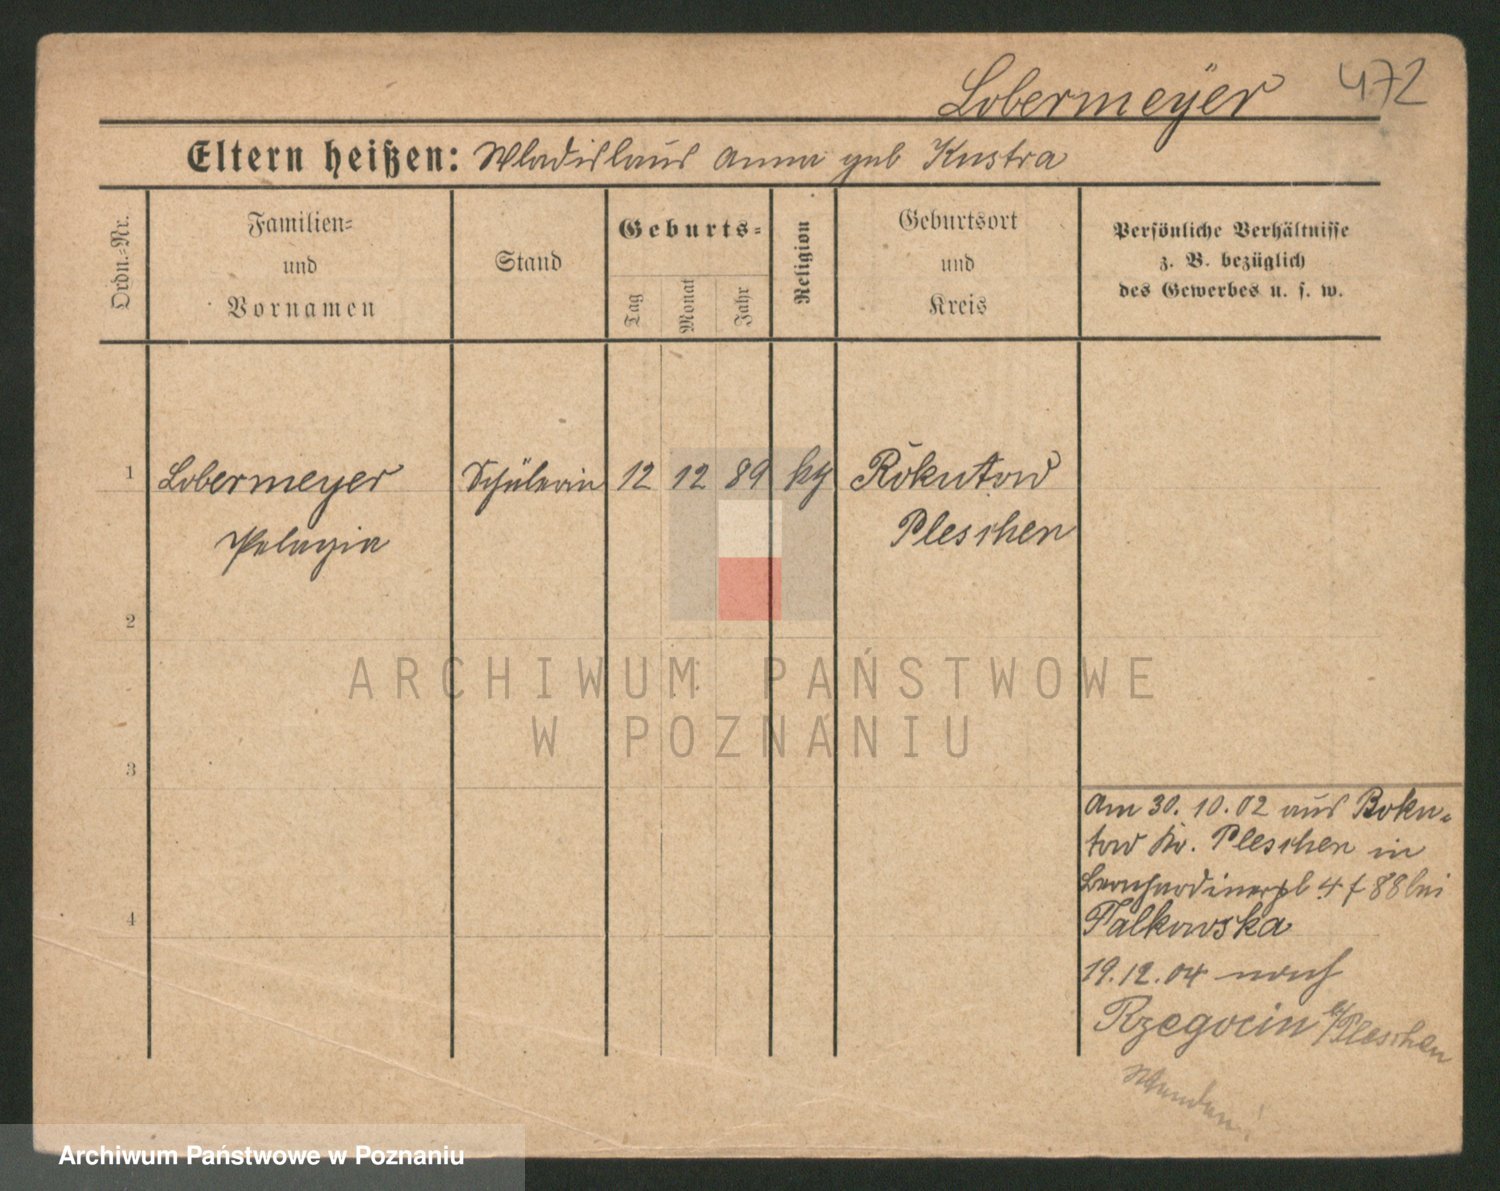 Lobermeÿer 472
Eltern heißen: Wladislaus Anna geb Kustra
Ordn.=Nr.
Familien=
und
Vornamen
Stand
Geburts=
Tag
Monat
Jahr
Religion
Geburtsort
und
Kreis
Persönliche Verhältnisse
z. B. bezüglich
des Gewerbes u. s. w.
1 Lobermeyer Schülerin 12 12 89 Rokutow
Pelagia Pleschen
2
3
4
Am 30. 10. 02 aus Boku=
tow Kr. Pleschen in
Bernhardinerpl 4 f 88 bei
Falkowska
19. 12. 04 nach
Rzegocin Pleschen
Wenden!
ARCHIWUM PAŃSTWOWE
W POZNANIU
Archiwum Państwowe w Poznaniu